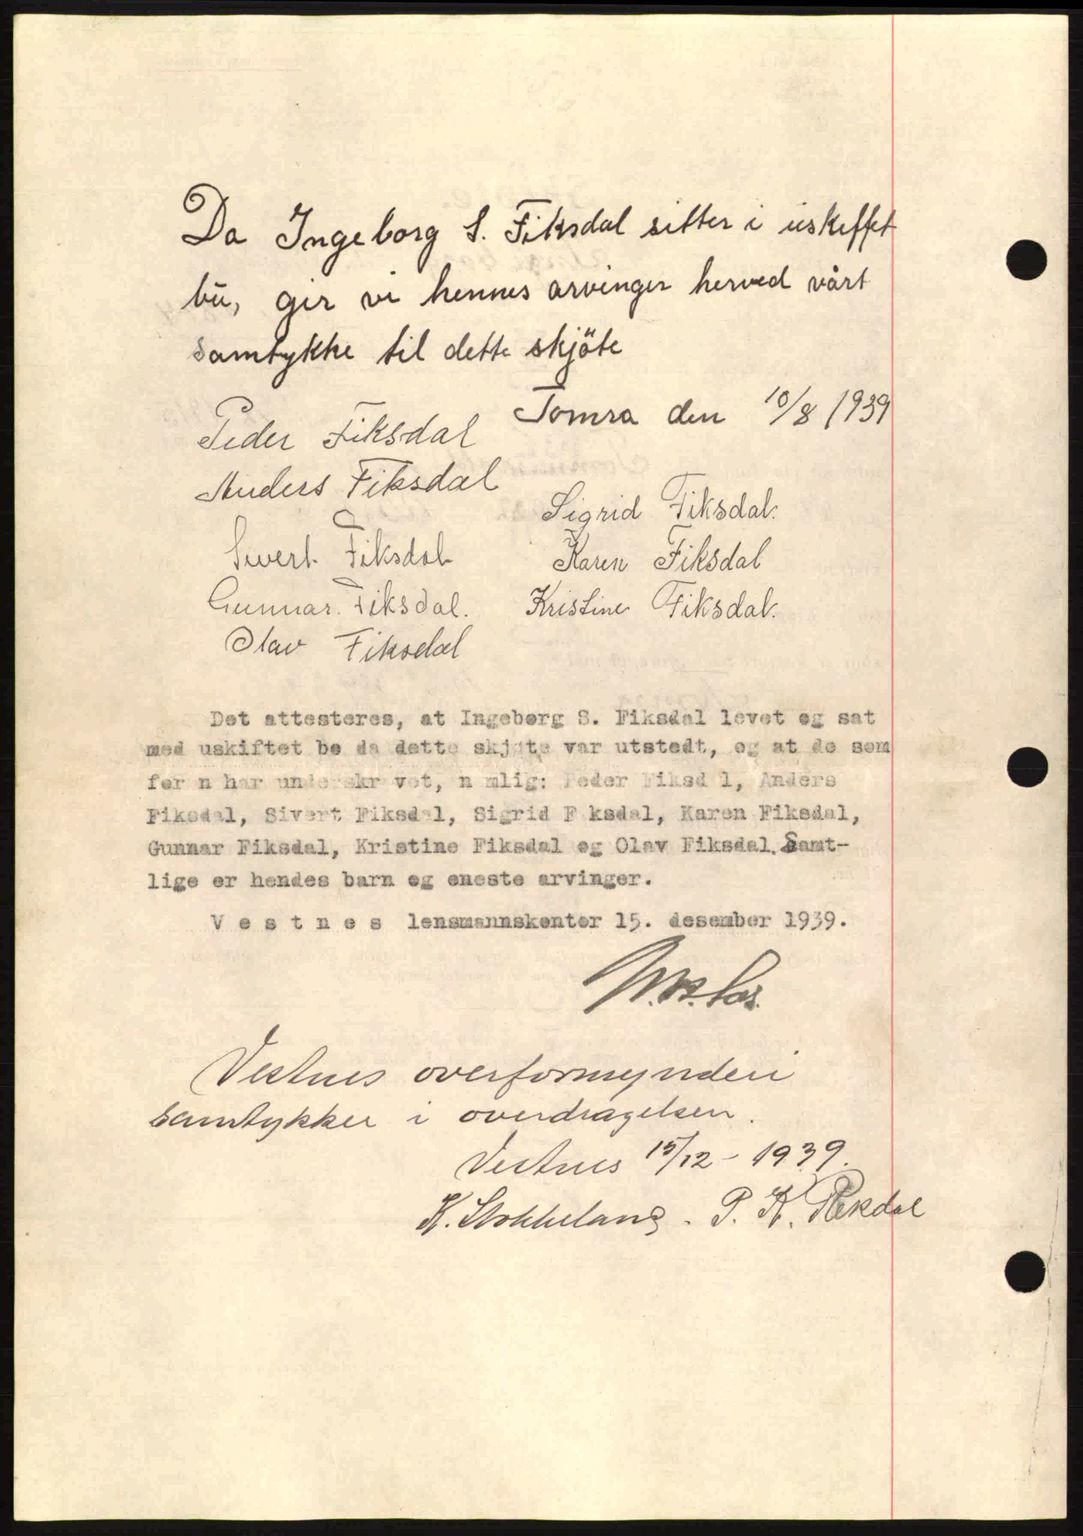 Da Ingeborg S. Fiksdal sitter i uskiffet
bu, gir vi hennes arvinger herved vårt
samtykke til dette skjöte
Tomra den 10/8 1939
Peder Fiksdal
Anders Fiksdal
Sigrid Fiksdal.
Sivert Fiksdal
Karen Fiksdal
Gunnar. Fiksdal.
Kristine Fiksdal.
Olav Fiksdal
Det attesteres, at Ingeberg S. Fiksdal levet eg sat
med uskiftet be da dette skjøte var utstedt, eg at de sem
før n har underskr vet, n mlig: Peder Fiksd l, Anders
Fiksdal, Sivert Fiksdal, Sigrid F ksdal, Karen Fiksdal,
Gunnar Fiksdal, Kristine Fiksdal eg Olav Fiksdal. Samt-
lige er hendes barn eg eneste arvinger.
V e s t n e s lensmannskenter 15. desember 1939.
Vestnes overformynderi
samtykker i overdragelsen.
Vestnes 15/12 - 1939.
K. Stokkeland. P. K. Rekdal